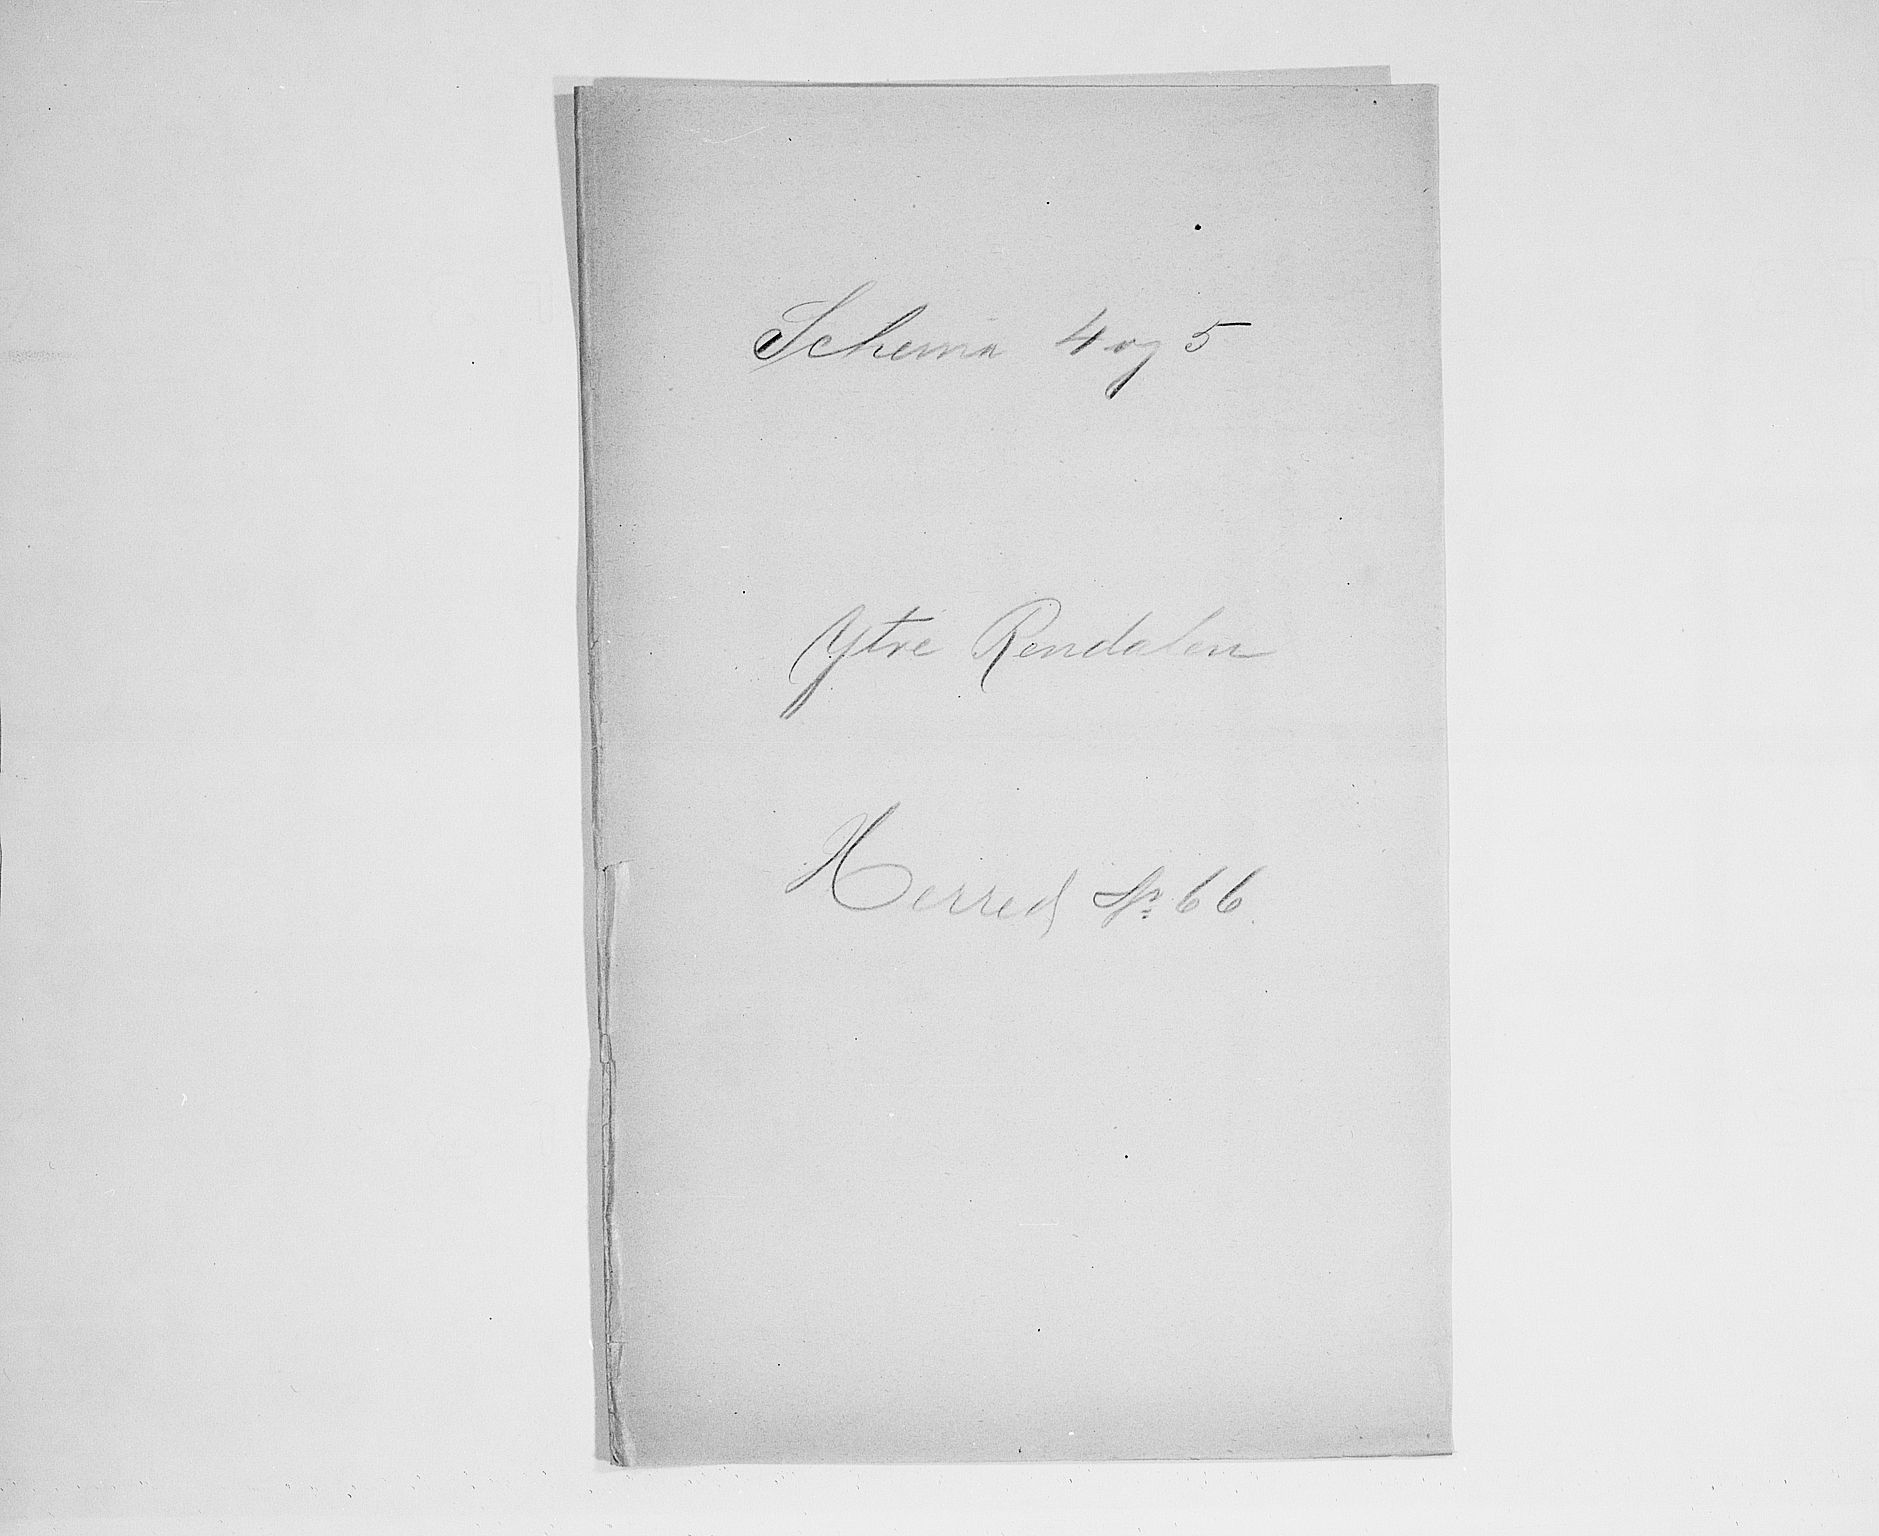 Schema 4 og 5
Ytre Rendalen
Herred No 66.